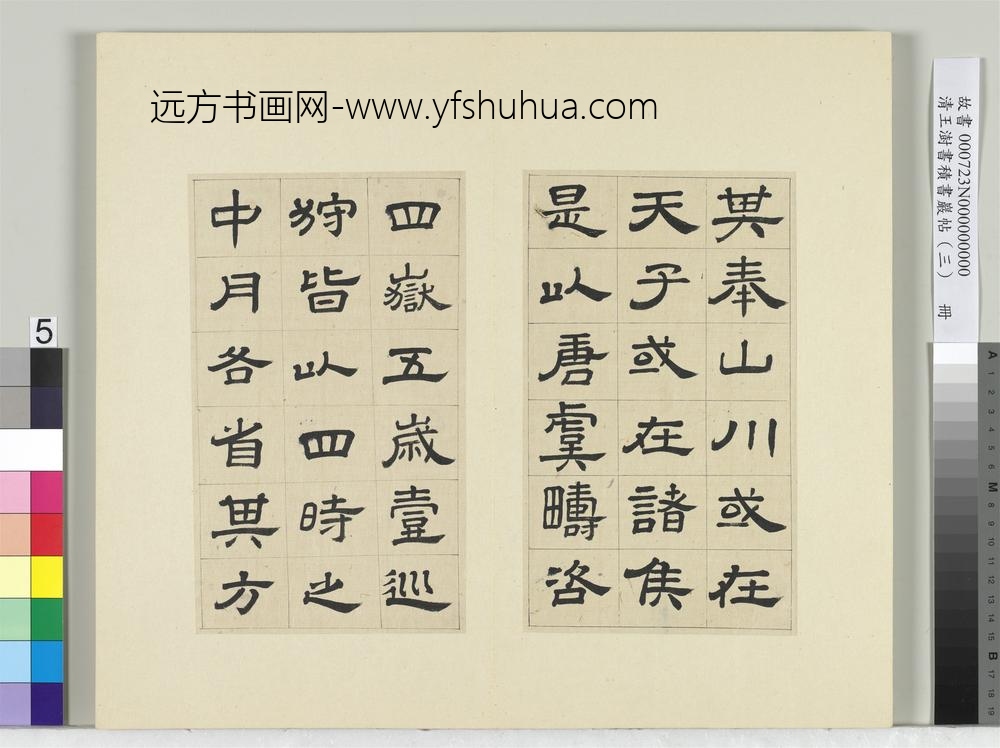 远方书画网-www.yfshuhua.com
其奉山川或在
天子或在諸侯
是以唐虞疇咨
四嶽五歲壹巡
狩皆以四時之
中月各省其方
故書 000723N000000000
清王澍書積書巖帖(三) 冊
5
A 1 2 3 4 5 6 M 8 9 10 11 12 13 14 15 B 17 18 19